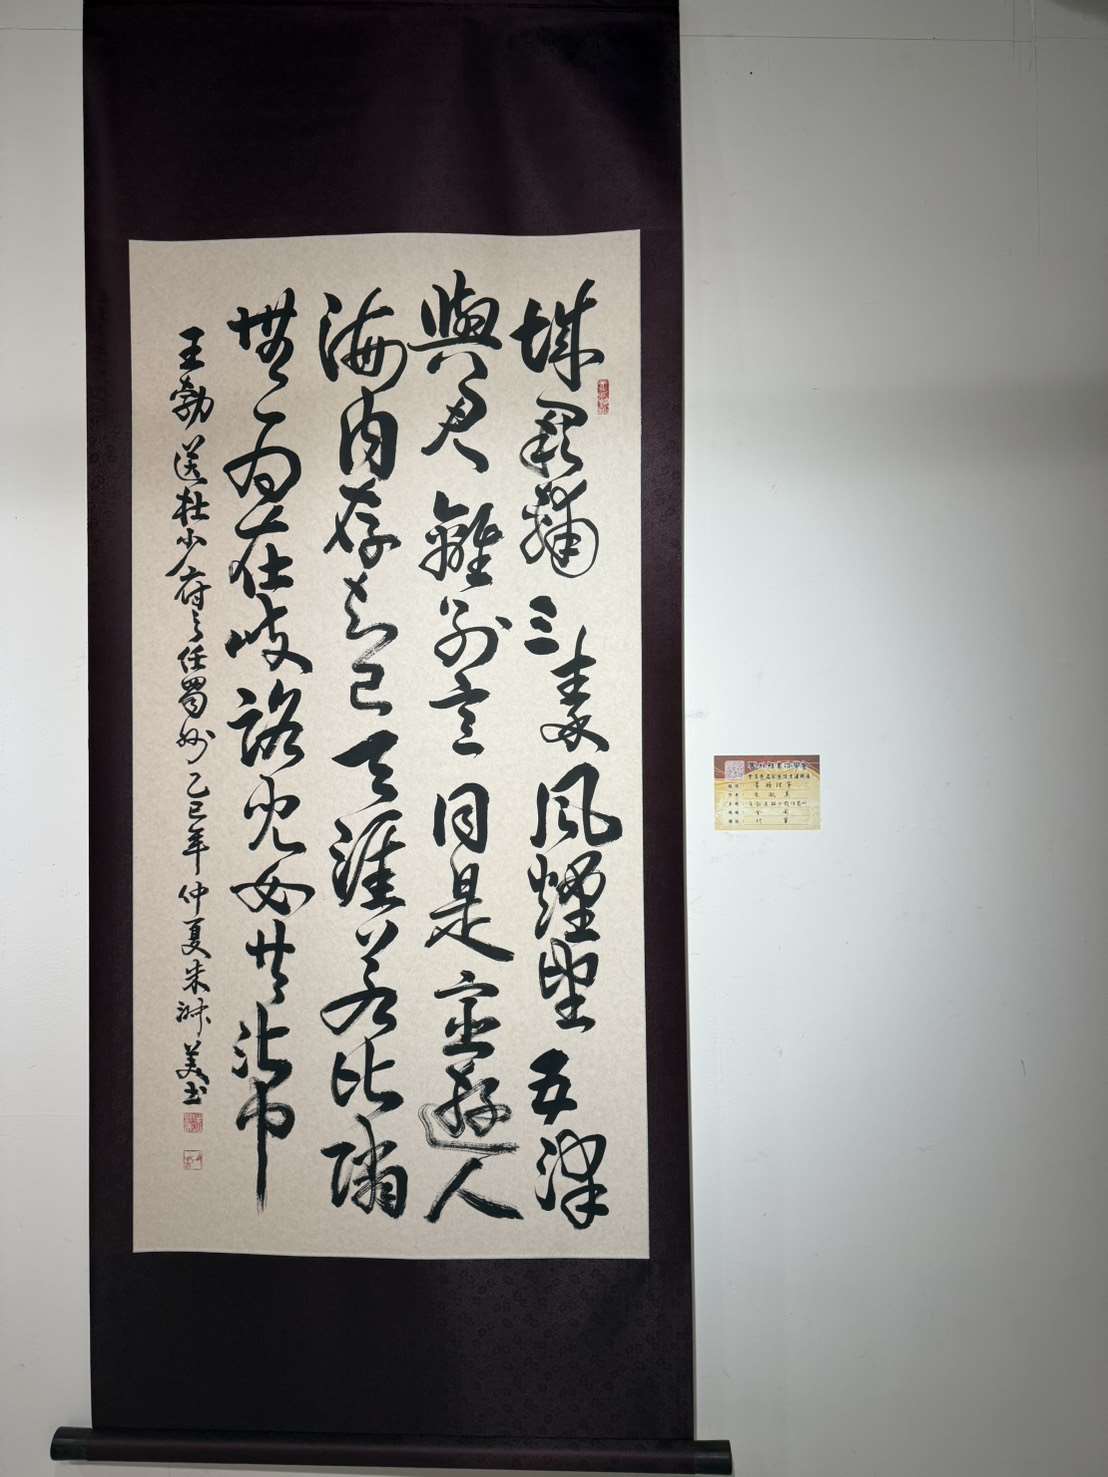 城闕輔三秦風煙望五津
與君離別意同是宦遊人
海内存知己天涯若比鄰
無為在岐路兒女共沾巾
王勃送杜少府之任蜀州乙巳年仲夏朱淑美書